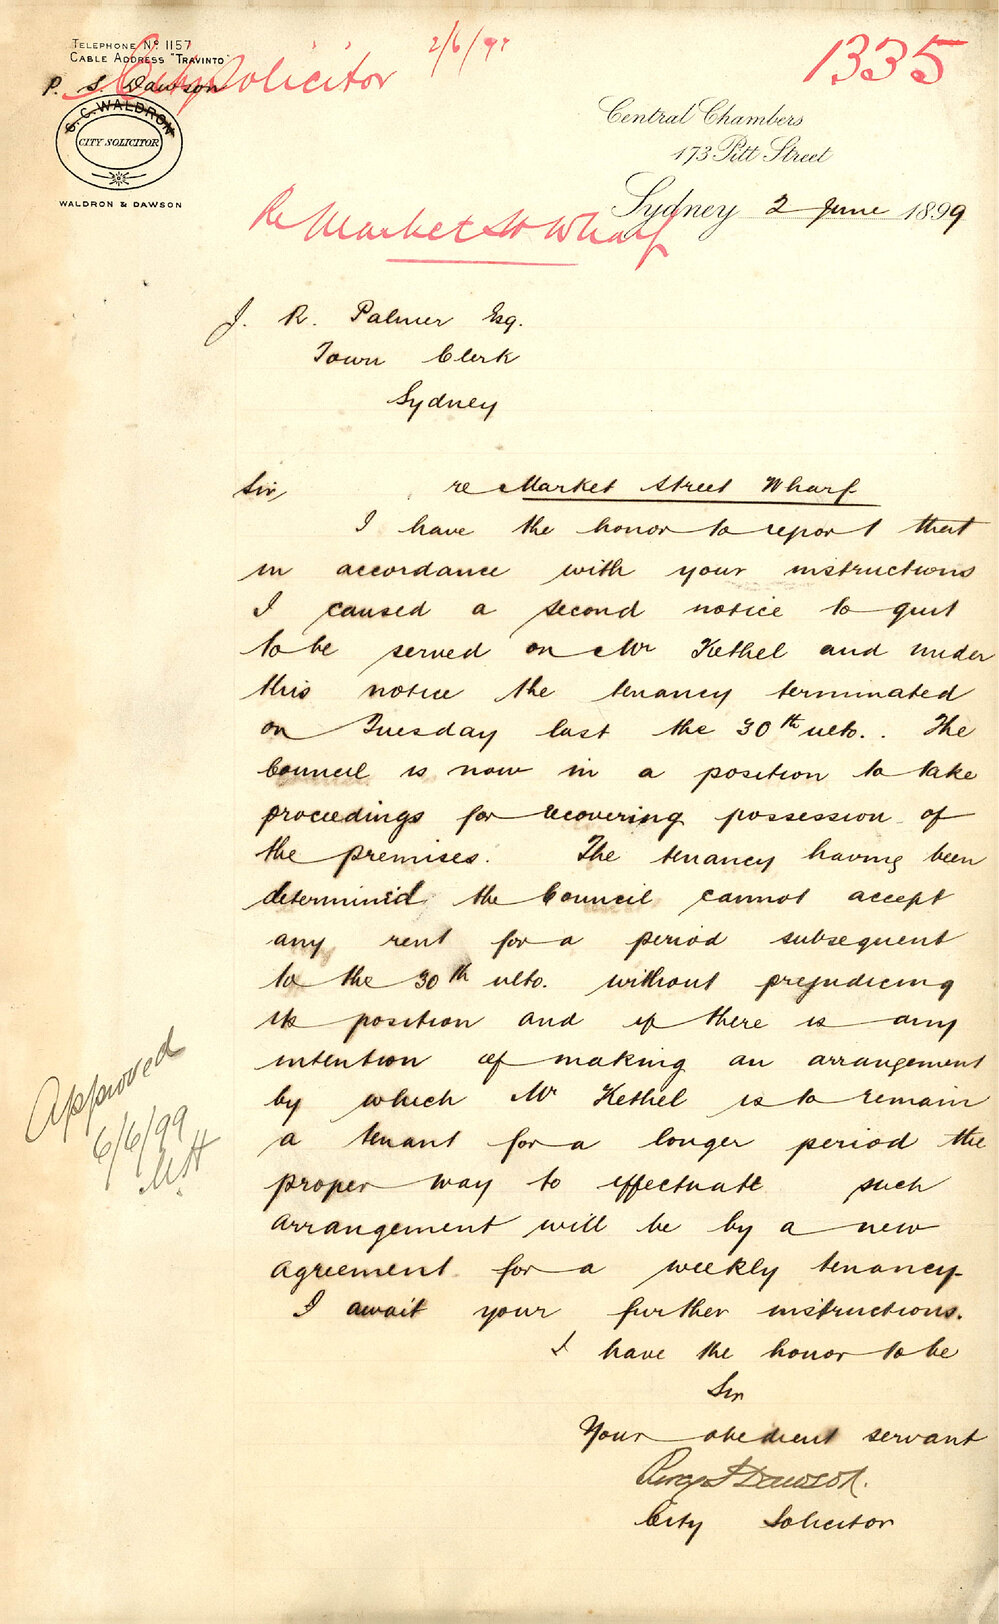 TELEPHONE No 1157
CABLE ADDRESS "TRAVINTO"
City Solicitor
2/6/99
1335
P. S. Dawson
G. C. WALDRON
CITY SOLICITOR
WALDRON & DAWSON
Central Chambers
173 Pitt Street
Sydney 2 June 1899
Re Market St Wharf
J. R. Palmer Esq.
Town Clerk
Sydney
Sir, re Market Street Wharf
I have the honor to report that
in accordance with your instructions
I caused a second notice to quit
to be served on Mr Kethel and under
this notice the tenancy terminated
on Tuesday last the 30th ulto.. The
Council is now in a position to take
proceedings for recovering possession of
the premises. The tenancy having been
determined the Council cannot accept
any rent for a period subsequent
to the 30th ulto. without prejudicing
its position and if there is any
intention of making an arrangement
by which Mr Kethel is to remain
a tenant for a longer period the
proper way to effectuate such
arrangement will be by a new
agreement for a weekly tenancy.
I await your further instructions.
I have the honor to be
Sir
Your obedient servant
Percy S Dawson.
City Solicitor
Approved
6/6/99
MH